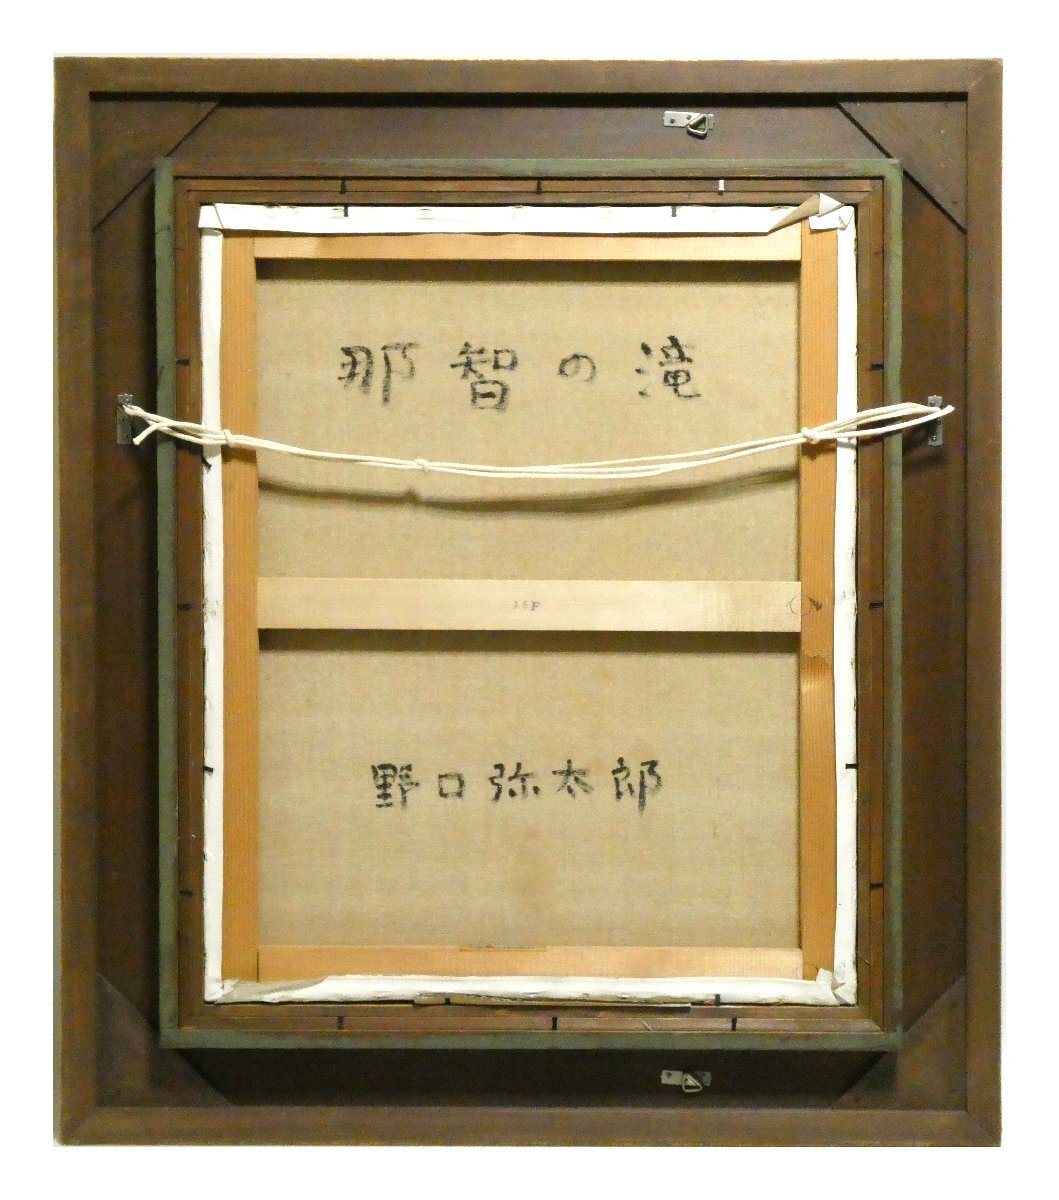 那智の滝
15F
野口弥太郎